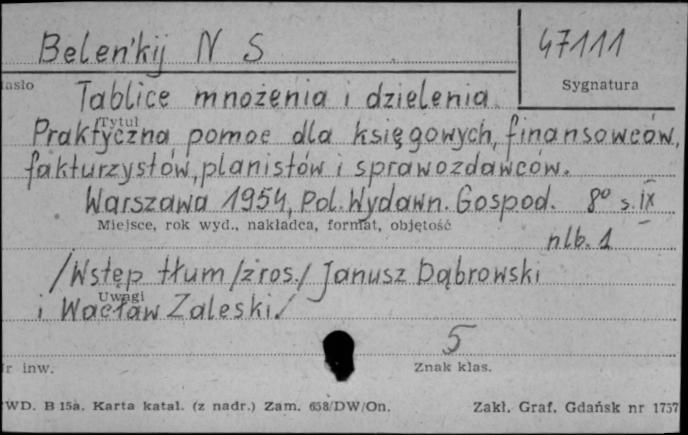 Belen'kij N S
47111
asło
Sygnatura
Tablice mnożenia i dzielenia.
Tytuł
Praktyczna pomoc dla księgowych, finansowców,
fakturzystów, planistów i sprawozdawców.
Warszawa 1954, Pol. Wydawn. Gospod. 8° s. IX
Miejsce, rok wyd., nakładca, format, objętość
nlb. 1
/Wstęp tłum /z ros./ Janusz Dąbrowski
Uwagi
i Wacław Zaleski./
5
r inw.
Znak klas.
WD. B 15a. Karta katal. (z nadr.) Zam. 658/DW/On.
Zakł. Graf. Gdańsk nr 1757